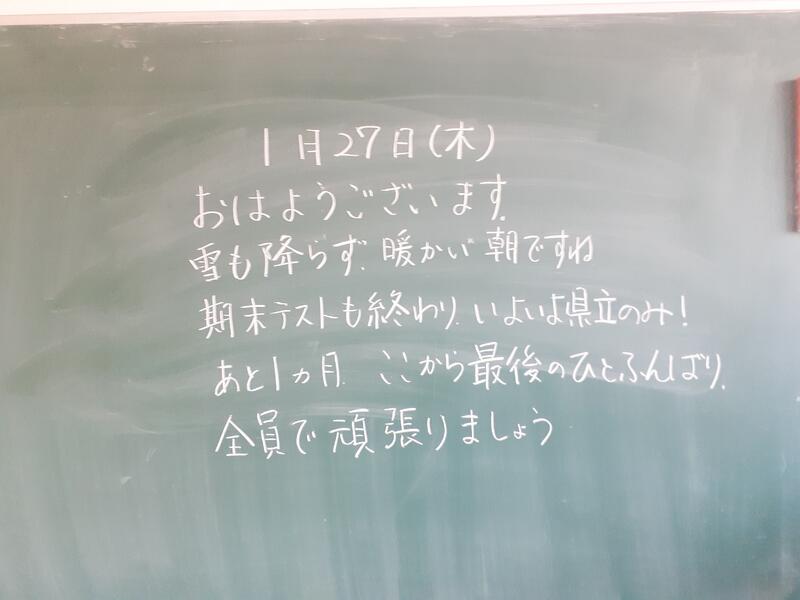 1月27日(木)
おはようございます。
雪も降らず、暖かい朝ですね
期末テストも終わり、いよいよ県立のみ!
あと1ヵ月、ここから最後のひとふんばり、
全員で頑張りましょう